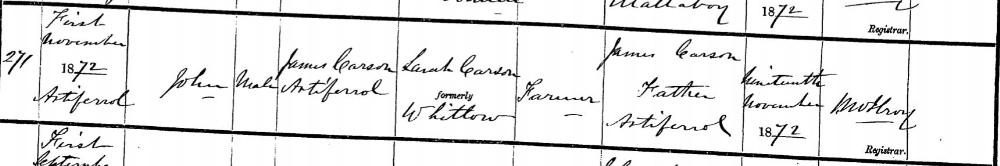 Mallaboy
1872
Registrar.
271
First
November
1872
Artiferrol
John
Male
James Carson
Artiferrol
Sarah Carson
formerly
Whittow
Farmer
James Carson
Father
Artiferrol
Nineteenth
November
1872
Registrar.
First